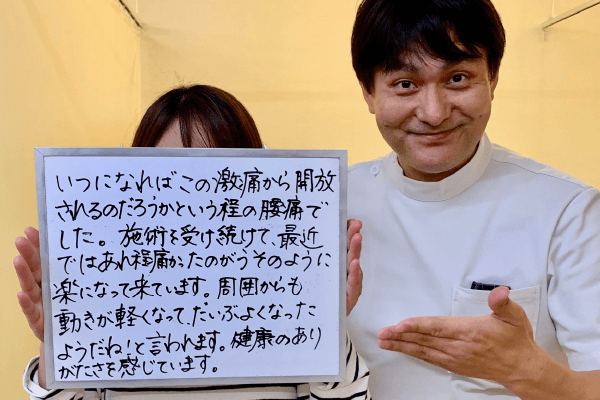 いつになればこの激痛から開放
されるのだろうかという程の腰痛で
した。施術を受け続けて、最近
ではあれ程痛かったのがうそのように
楽になって来ています。周囲からも
動きが軽くなって、だいぶよくなった
ようだね!と言われます。健康のあり
がたさを感じています。